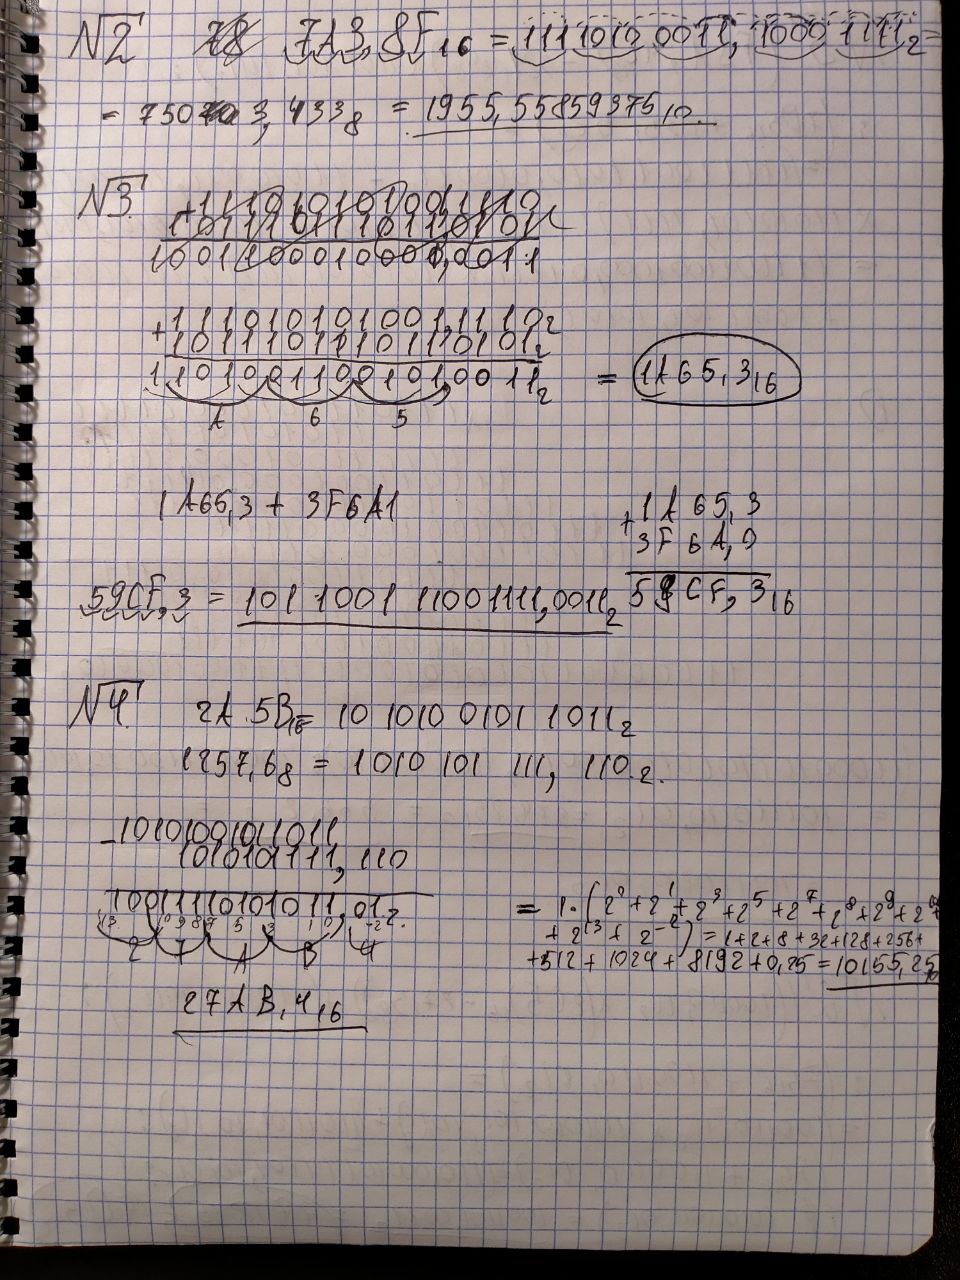 №2 7A3,8F₁₆ = 11110100011,10001111₂ =
= 7503,433₈ = 1955,55859375₁₀
№3 +111101010100 1,1110
1011101110110101
1001100010000,0011
+111101010100 1,1110₂
101110111011 0101₂
1101001100101,0011₂ = 1A65,3₁₆
A 6 5
1A65,3 + 3F6A1
+1A65,3
3F6A,0
59CF,3 = 101 1001 11001111,0011₂ 59CF,3₁₆
№4 2A5B₁₆ = 10 1010 0101 1011₂
1257,6₈ = 1010 101 111, 110₂.
-10101001011011
1010101111,110
10011110101011,01₂ = 1·(2⁰+2¹+2³+2⁵+2⁷+2⁸+2⁹+2¹⁰+
+2¹³+2⁻²) = 1+2+8+32+128+256+
2 7 A B 4 +512+1024+8192+0,25=10155,25₁₀
27AB,4₁₆